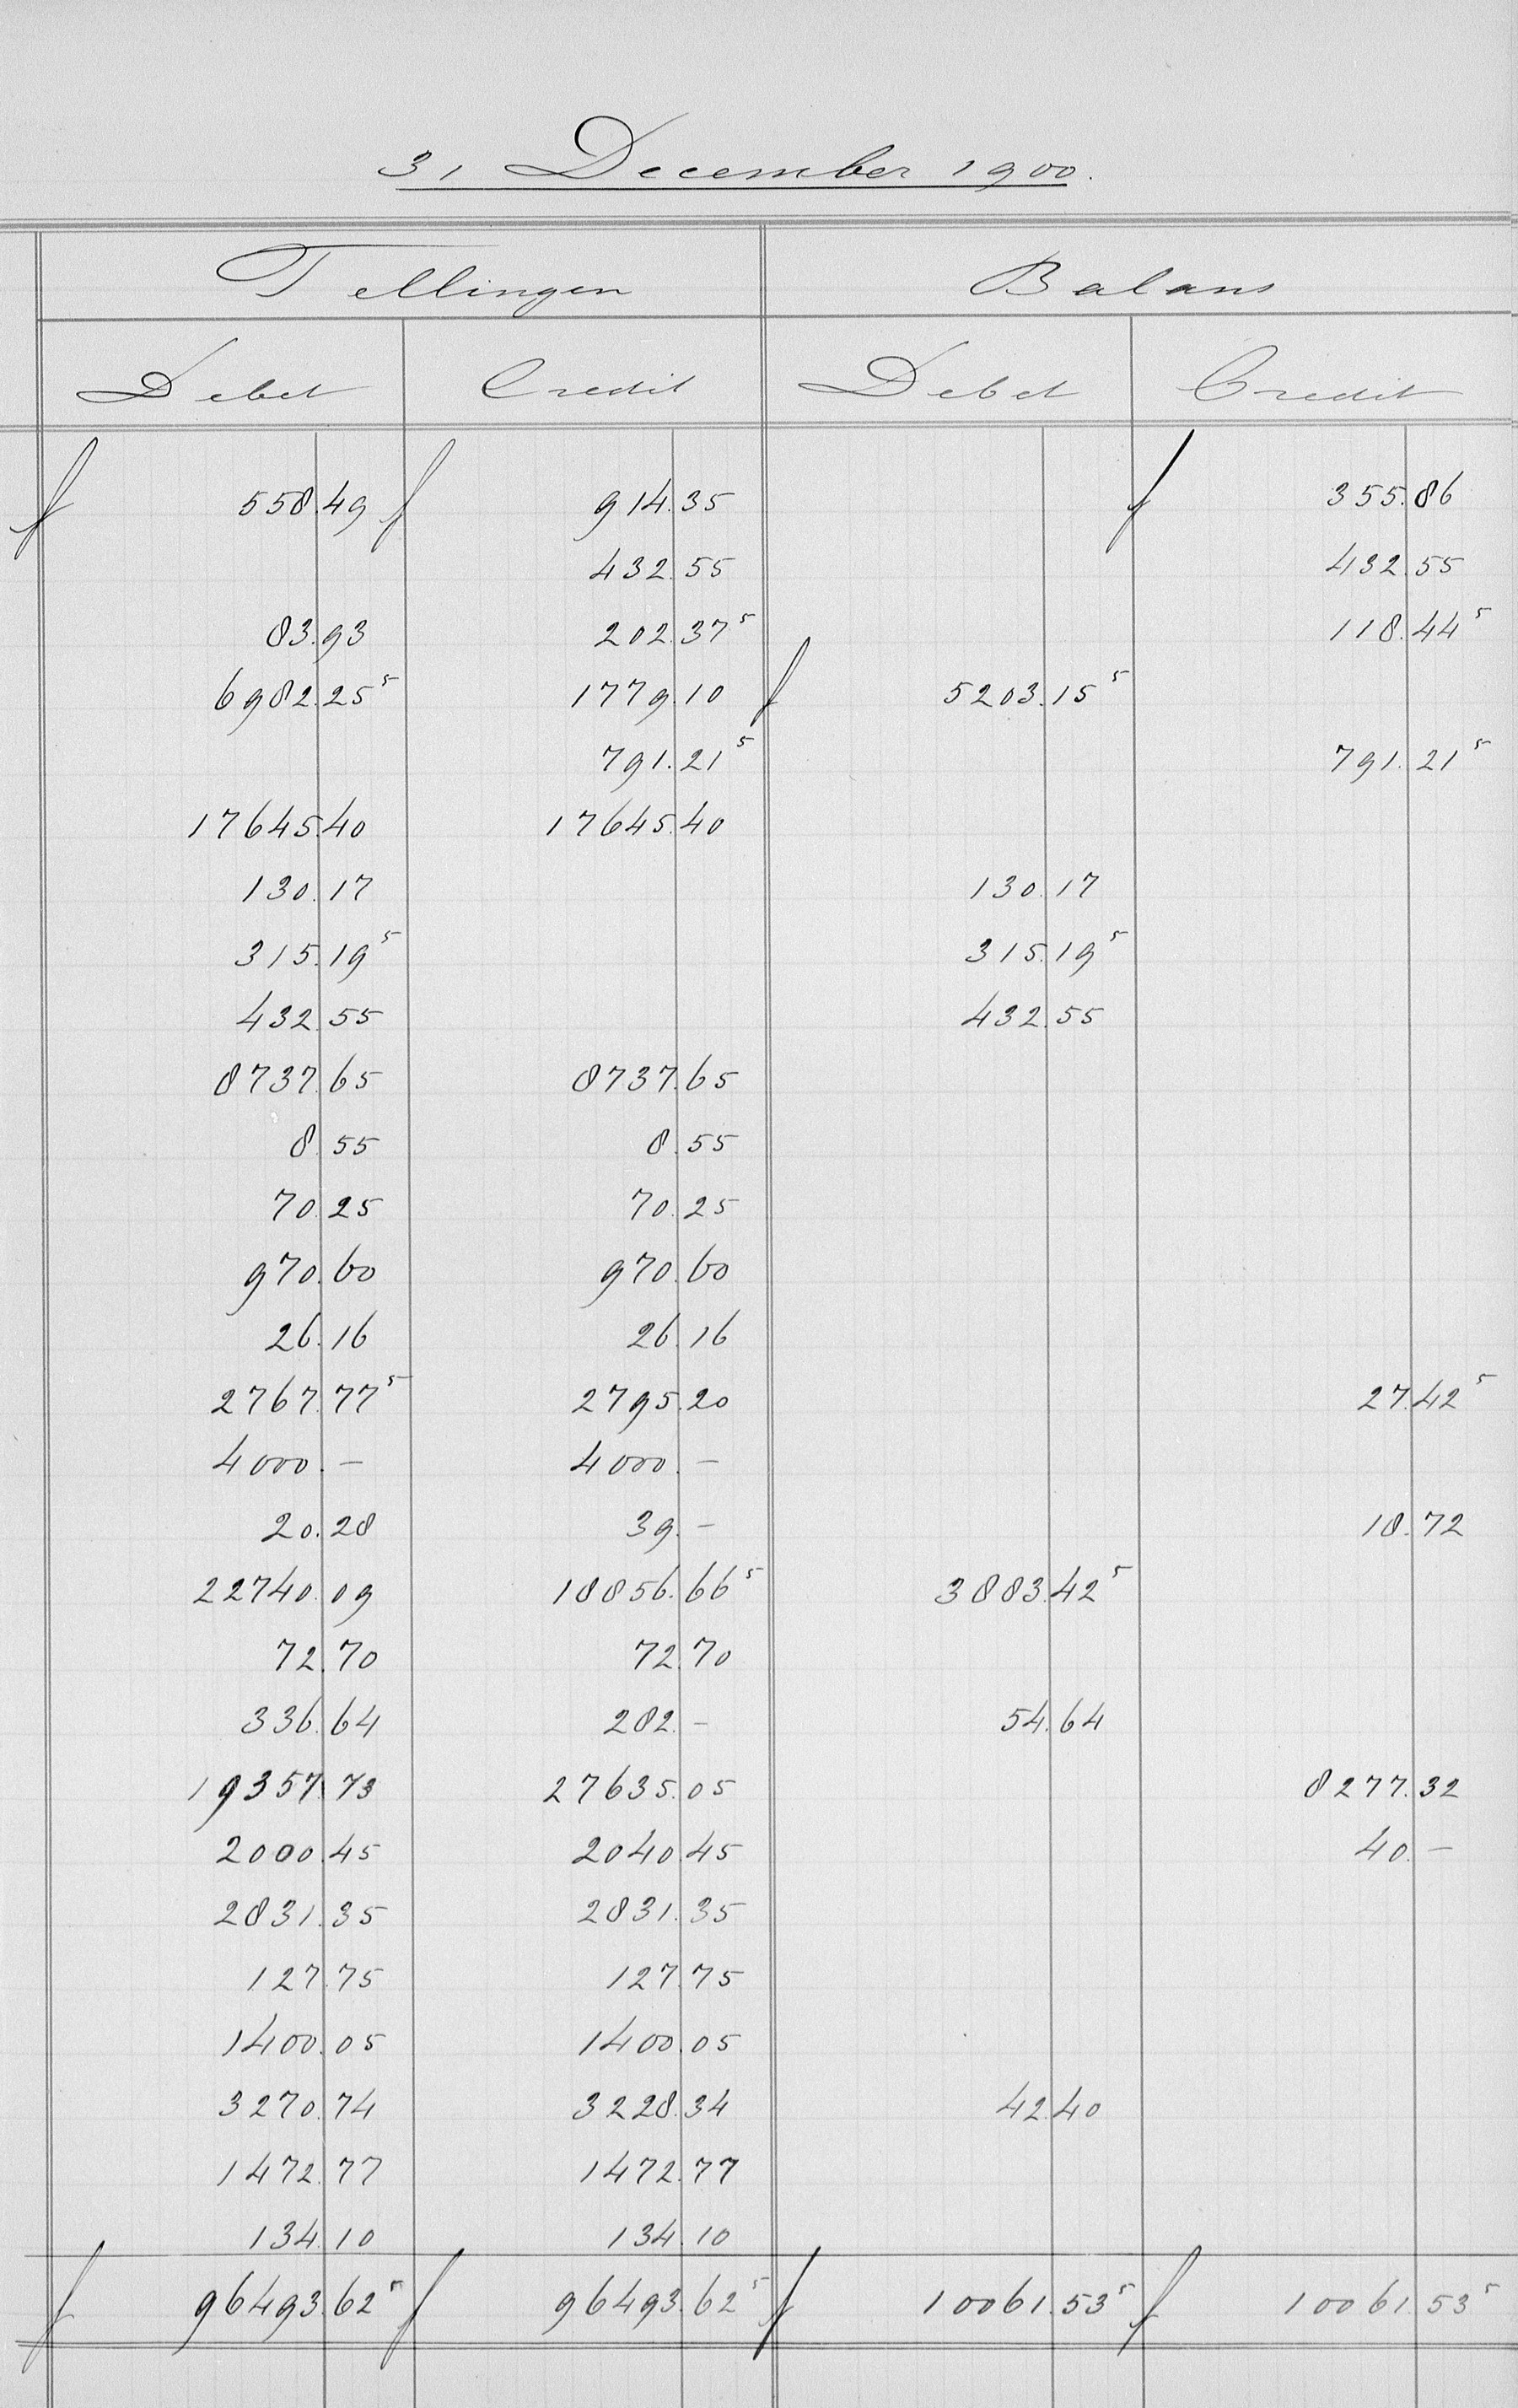 31 December 1900.
Tellingen Balans
Debet Credit Debet Credit
f 558.49 f 914.35 f 355.86
432.55 432.55
83.93 202.37⁵ 118.44⁵
6982.25⁵ 1779.10 f 5203.15⁵
791.21⁵ 791.21⁵
17645.40 17645.40
130.17 130.17
315.19⁵ 315.19⁵
432.55 432.55
8737.65 8737.65
8.55 8.55
70.25 70.25
970.60 970.60
26.16 26.16
2767.77⁵ 2795.20 27.42⁵
4000.- 4000.-
20.28 39.- 18.72
22740.09 18856.66⁵ 3883.42⁵
72.70 72.70
336.64 282.- 54.64
19357.73 27635.05 8277.32
2000.45 2040.45 40.-
2831.35 2831.35
127.75 127.75
1400.05 1400.05
3270.74 3228.34 42.40
1472.77 1472.77
134.10 134.10
f 96493.62⁵ f 96493.62⁵ f 10061.53⁵ f 10061.53⁵